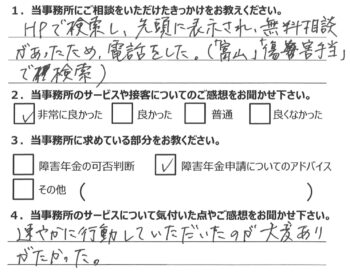 1. 当事務所にご相談をいただけたきっかけをお教えください。
HPで検索し、先頭に表示され、無料相談
があったため、電話をした。(「富山」「障害手当」
で検索)
2. 当事務所のサービスや接客についてのご感想をお聞かせ下さい。
☑非常に良かった □良かった □普通 □良くなかった
3. 当事務所に求めている部分をお教ください。
□障害年金の可否判断 ☑障害年金申請についてのアドバイス
□その他 ( )
4. 当事務所のサービスについて気付いた点やご感想をお聞かせ下さい。
速やかに行動していただいたのが大変あり
がたかった。